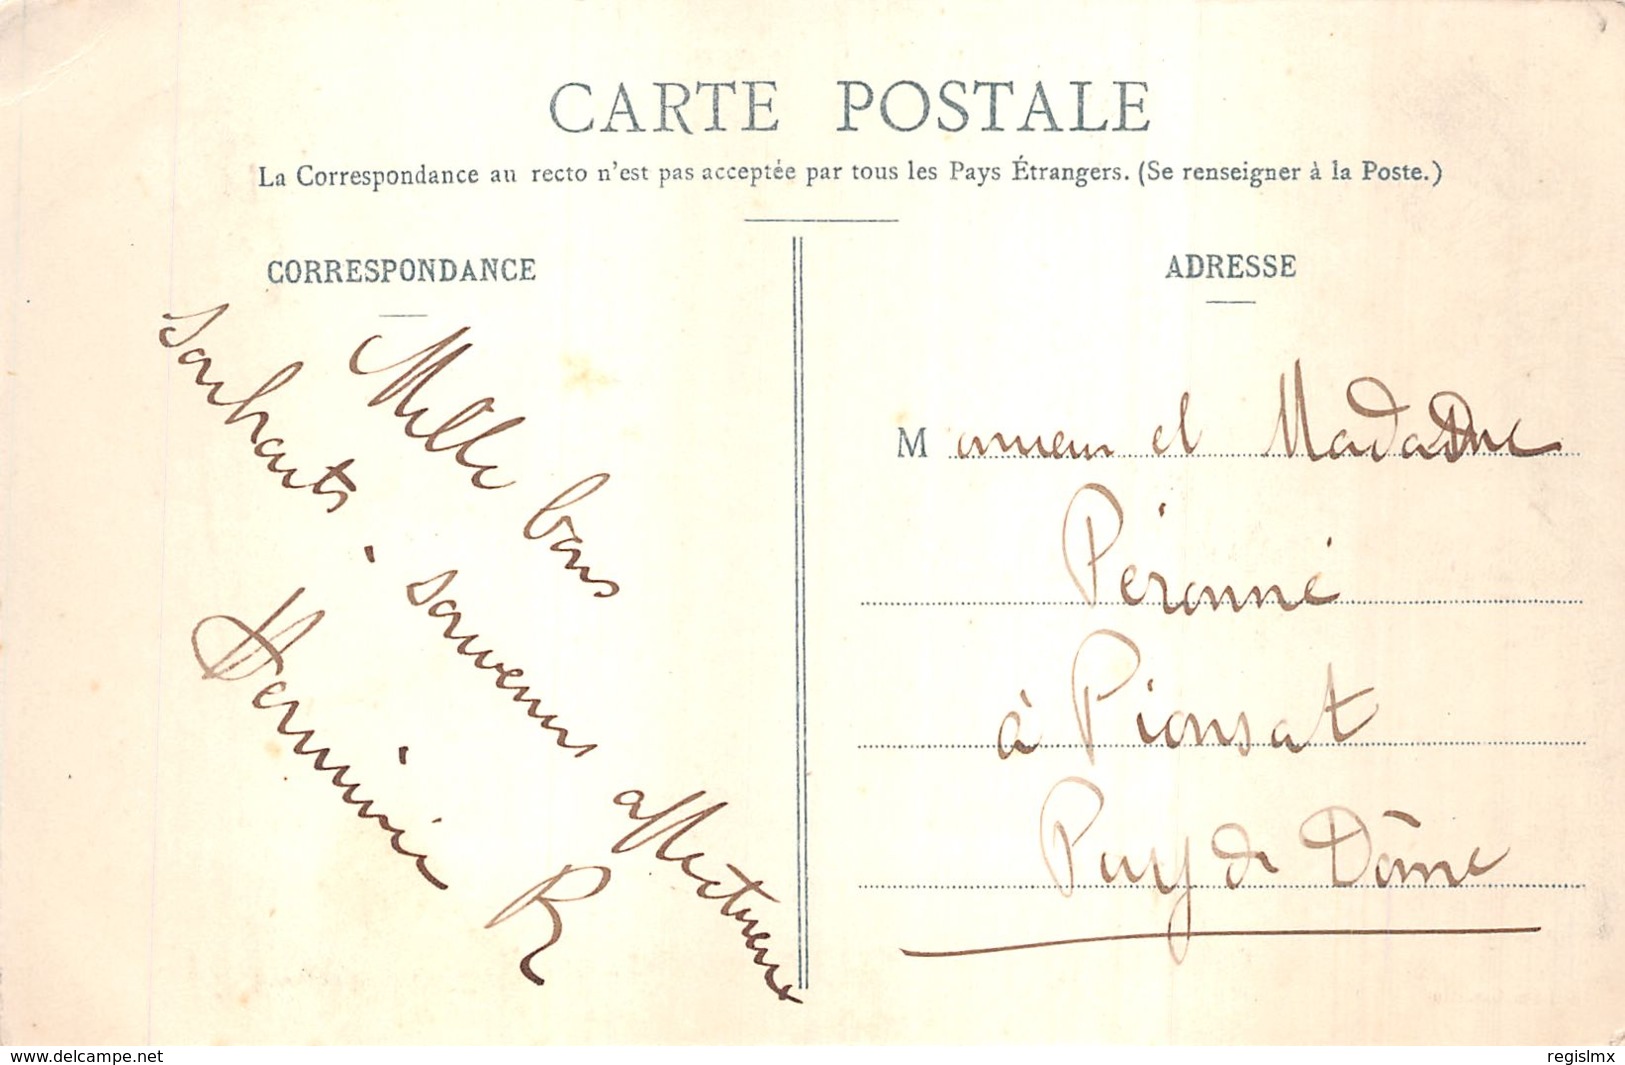 CARTE POSTALE
La Correspondance au recto n'est pas acceptée par tous les Pays Étrangers. (Se renseigner à la Poste.)
CORRESPONDANCE
Mille bons
souhaits. souvenirs affectueux
Hermine R
ADRESSE
Monsieur et Madame
Péronné
à Pionsat
Puy de Dôme
www.delcampe.net
regislmx